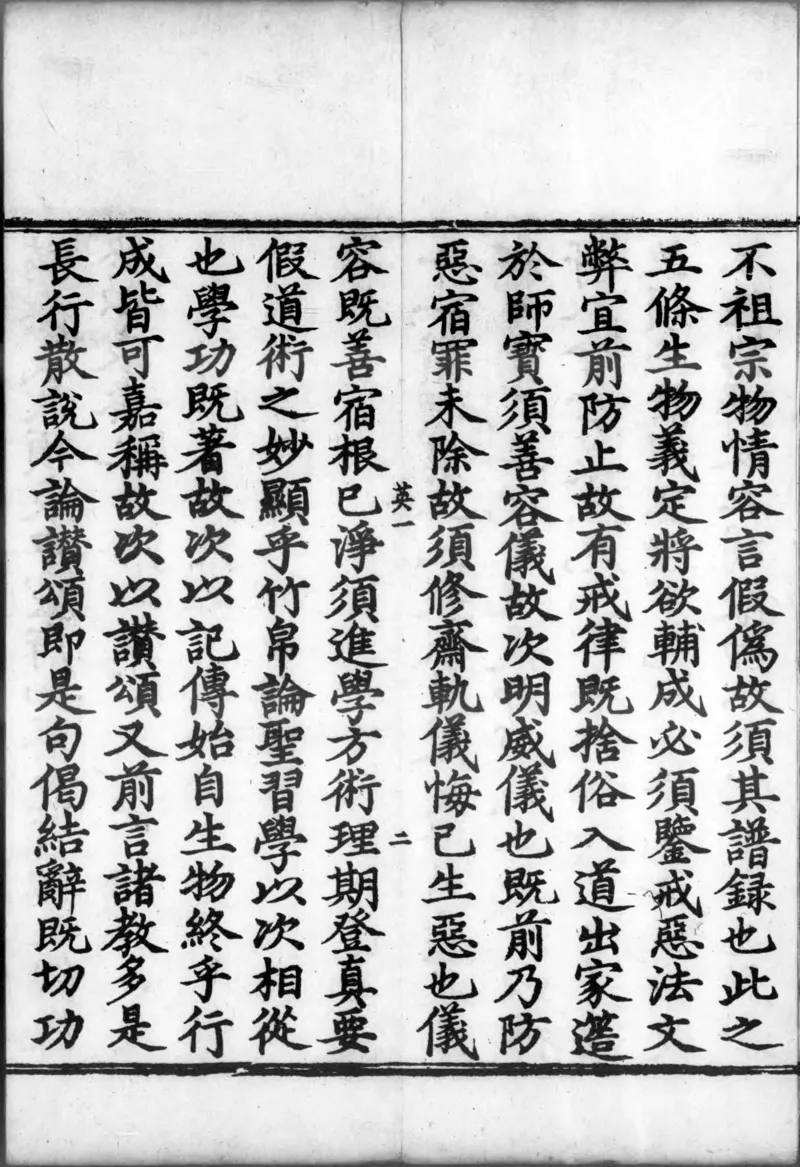 不祖宗物情容言假僞故須其譜録也此之
五條生物義定將欲輔成必須鑒戒惡法文
弊宜前防止故有戒律既捨俗入道出家簉
於師寳須善容儀故次明威儀也既前乃防
惡宿罪未除故須修齋軌儀悔已生惡也儀
英一
二
容既善宿根已淨須進學方術理期登真要
假道術之妙顯乎竹帛論聖習學以次相從
也學功既著故次以記傳始自生物終乎行
成皆可嘉稱故次以讃頌又前言諸教多是
長行散說今論讃頌即是句偈結辭既切功